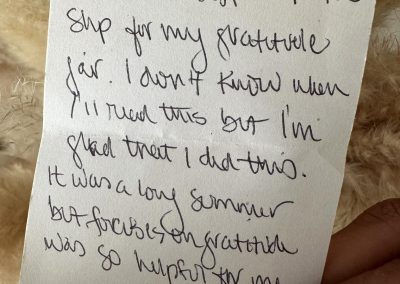 slip for my gratitude
jar. I don't know when
I'll read this but I'm
glad that I did this.
It was a long summer
but focus is on gratitude
was so helpful for me